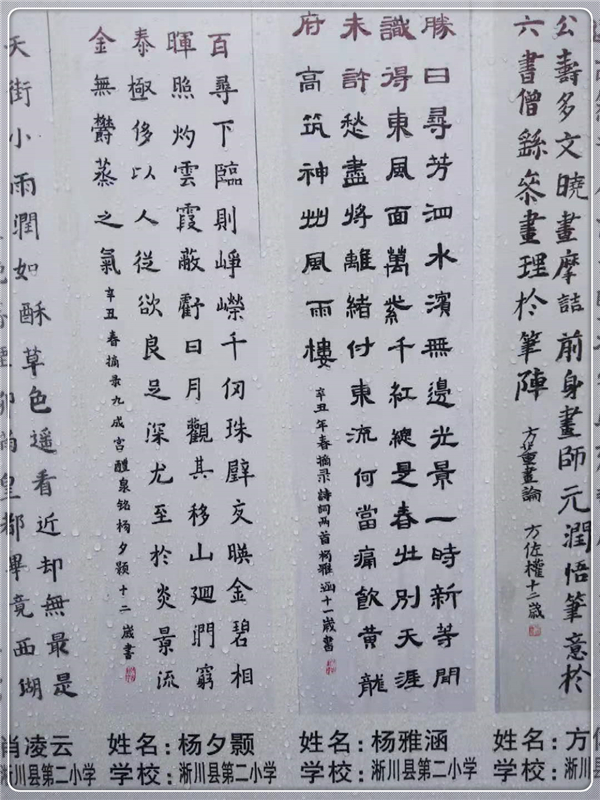 公壽多文曉畫摩詰前身畫師元潤悟筆意於
六書僧繇參畫理於筆陣
方薰畫論 方佐權十二歲
勝日尋芳泗水濱無邊光景一時新等閒
識得東風面萬紫千紅總是春壯別天涯
未許愁盡將離緒付東流何當痛飲黃龍
府高筑神州風雨樓
辛丑年春摘录詩詞两首杨雅涵十一歲書
百尋下臨則崢嶸千仞珠壁交暎金碧相
暉照灼雲霞蔽虧日月觀其移山廻澗窮
泰極侈以人從欲良足深尤至於炎景流
金無鬱蒸之氣
辛丑春摘录九成宫醴泉铭杨夕颢十二歲書
天街小雨潤如酥草色遥看近却無最是
皇都畢竟西湖
肖凌云
淅川县第二小学
姓名:杨夕颢
学校:淅川县第二小学
姓名:杨雅涵
学校:淅川县第二小学
姓名:方
学校:淅